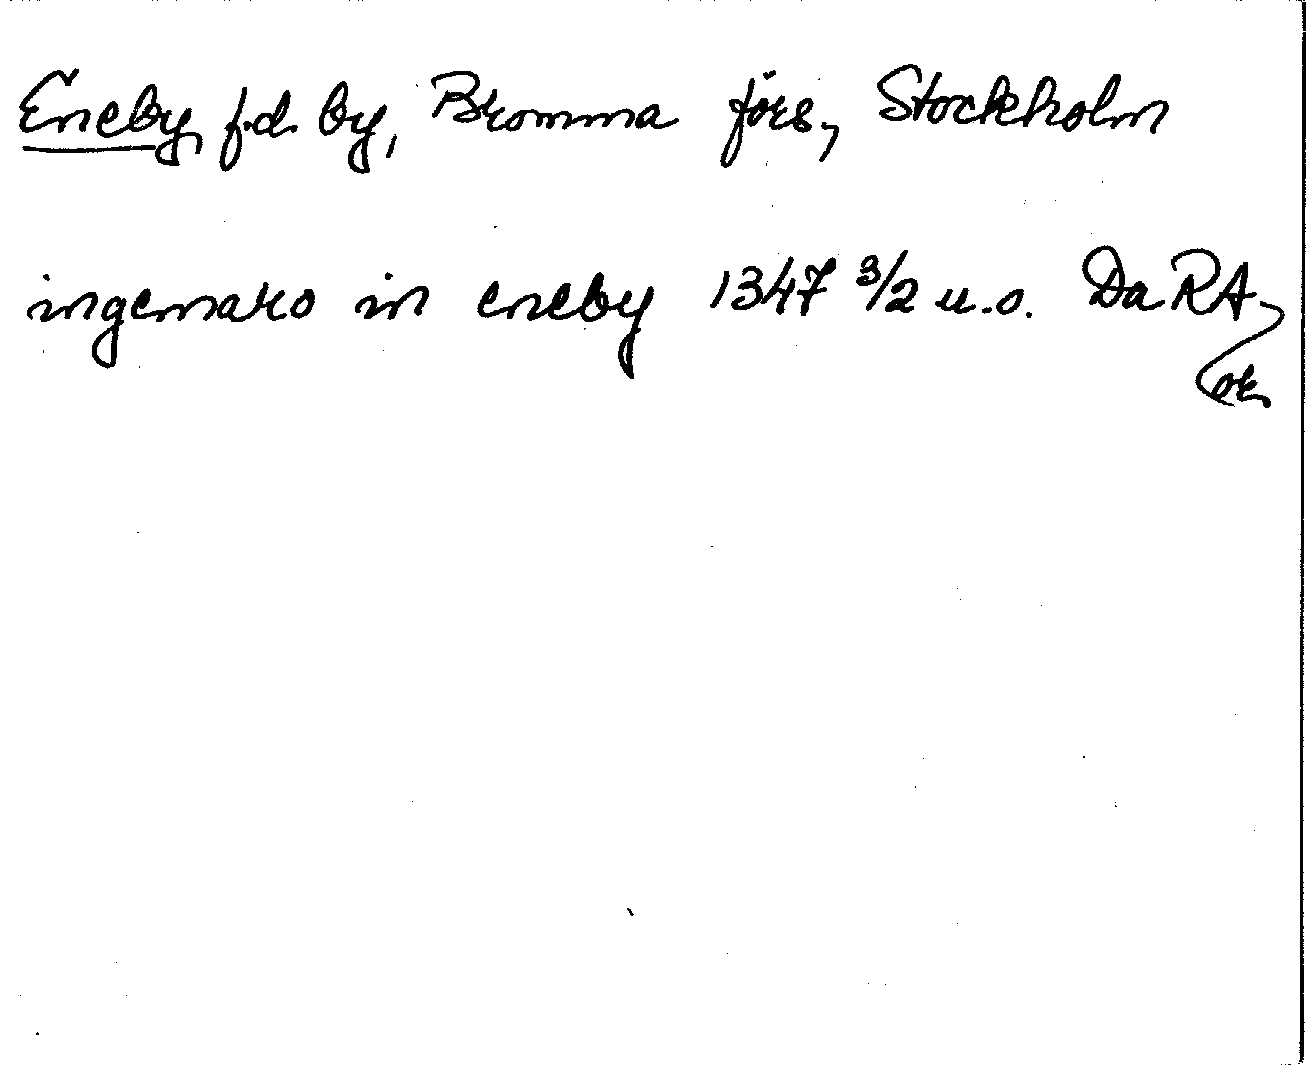 Eneby, f.d. by, Bromma förs, Stockholm
ingemaro in eneby 1347 3/2 u.o. Da RA,
ok